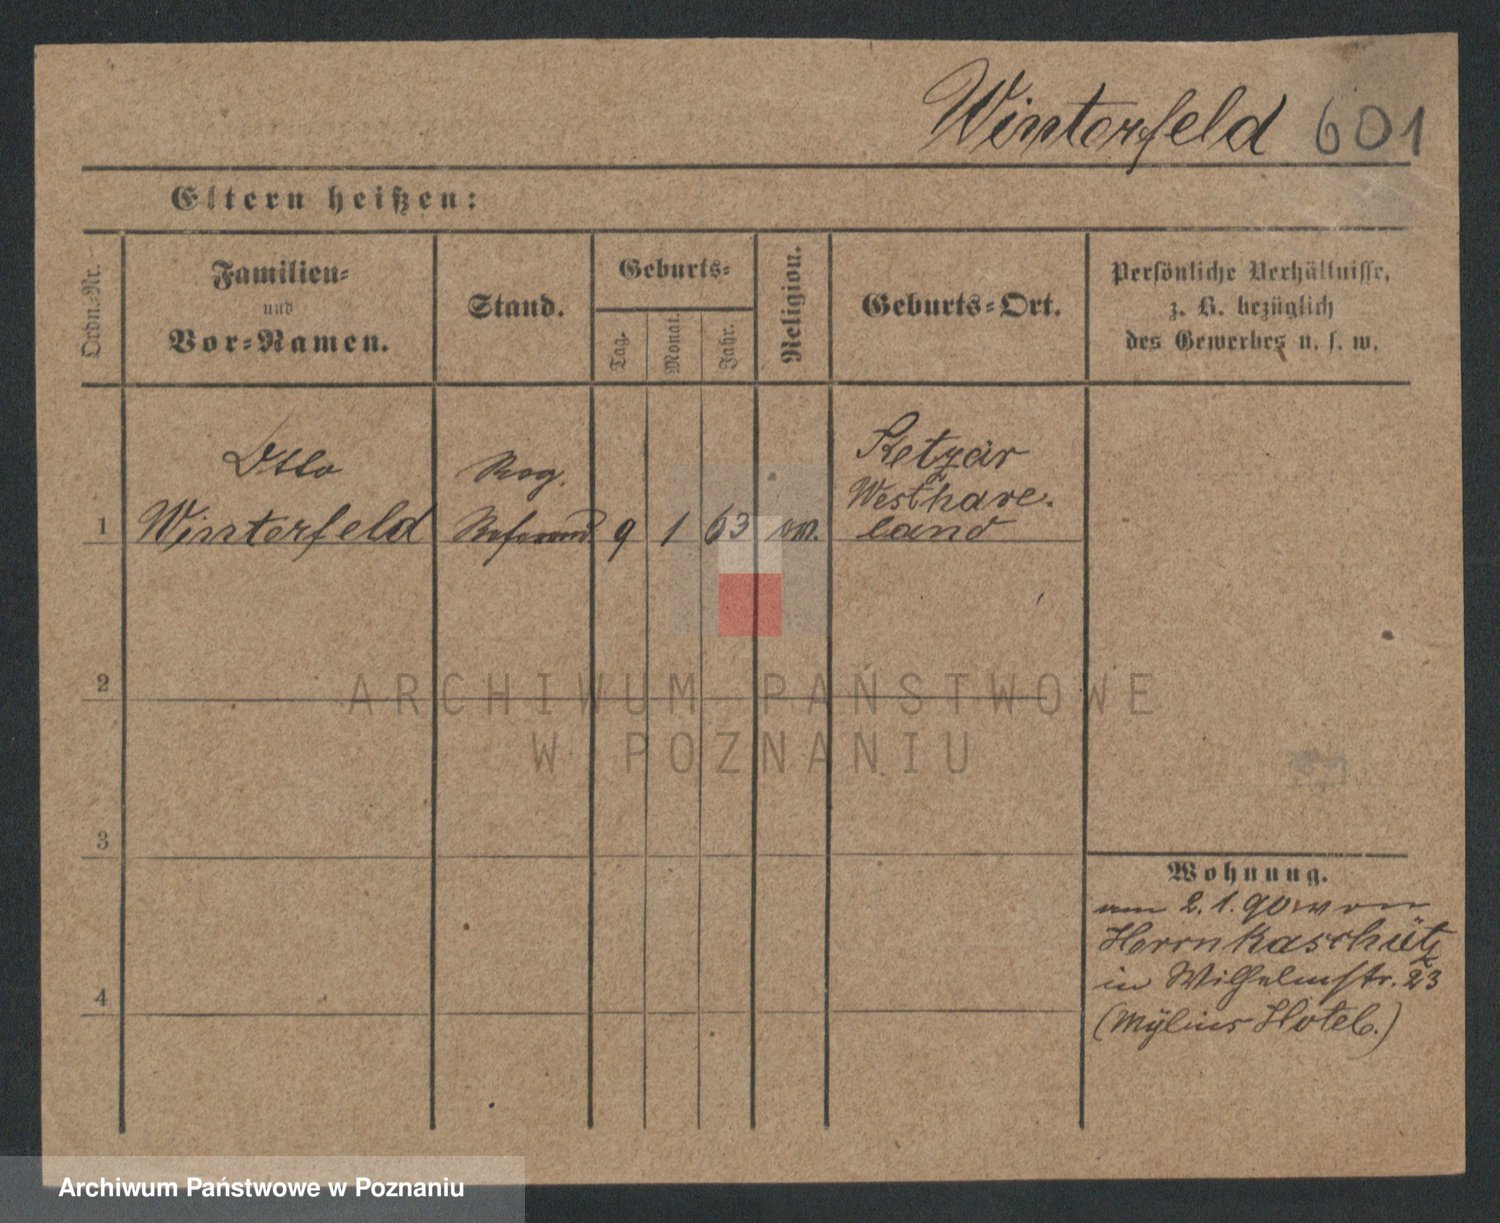 Winterfeld 601
Eltern heißen:
Ordn.-Nr.
Familien-
und
Vor-Namen.
Stand.
Geburts-
Tag.
Monat.
Jahr.
Religion.
Geburts-Ort.
Persönliche Verhältnisse,
z. B. bezüglich
des Gewerbes u. s. w.
1
Otto
Winterfeld
Reg.
Referend
9
1
63
ev.
Retzär
Westhave-
land
2
3
4
Wohnung.
am 2.1.90 von
Herrn Kaschütz
in Wilhelmstr. 23
(Mylius Hotel.)
ARCHIWUM PAŃSTWOWE
W POZNANIU
Archiwum Państwowe w Poznaniu